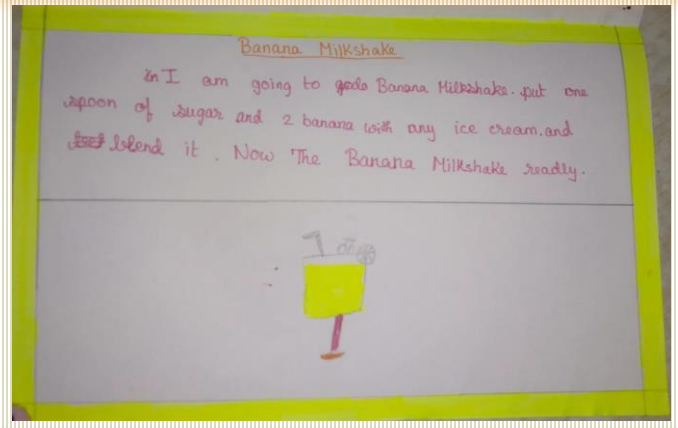 Banana Milkshake
In I am going to godo Banana Milkshake. put one
spoon of sugar and 2 banana with any ice cream. and
blend it. Now The Banana Milkshake readly.